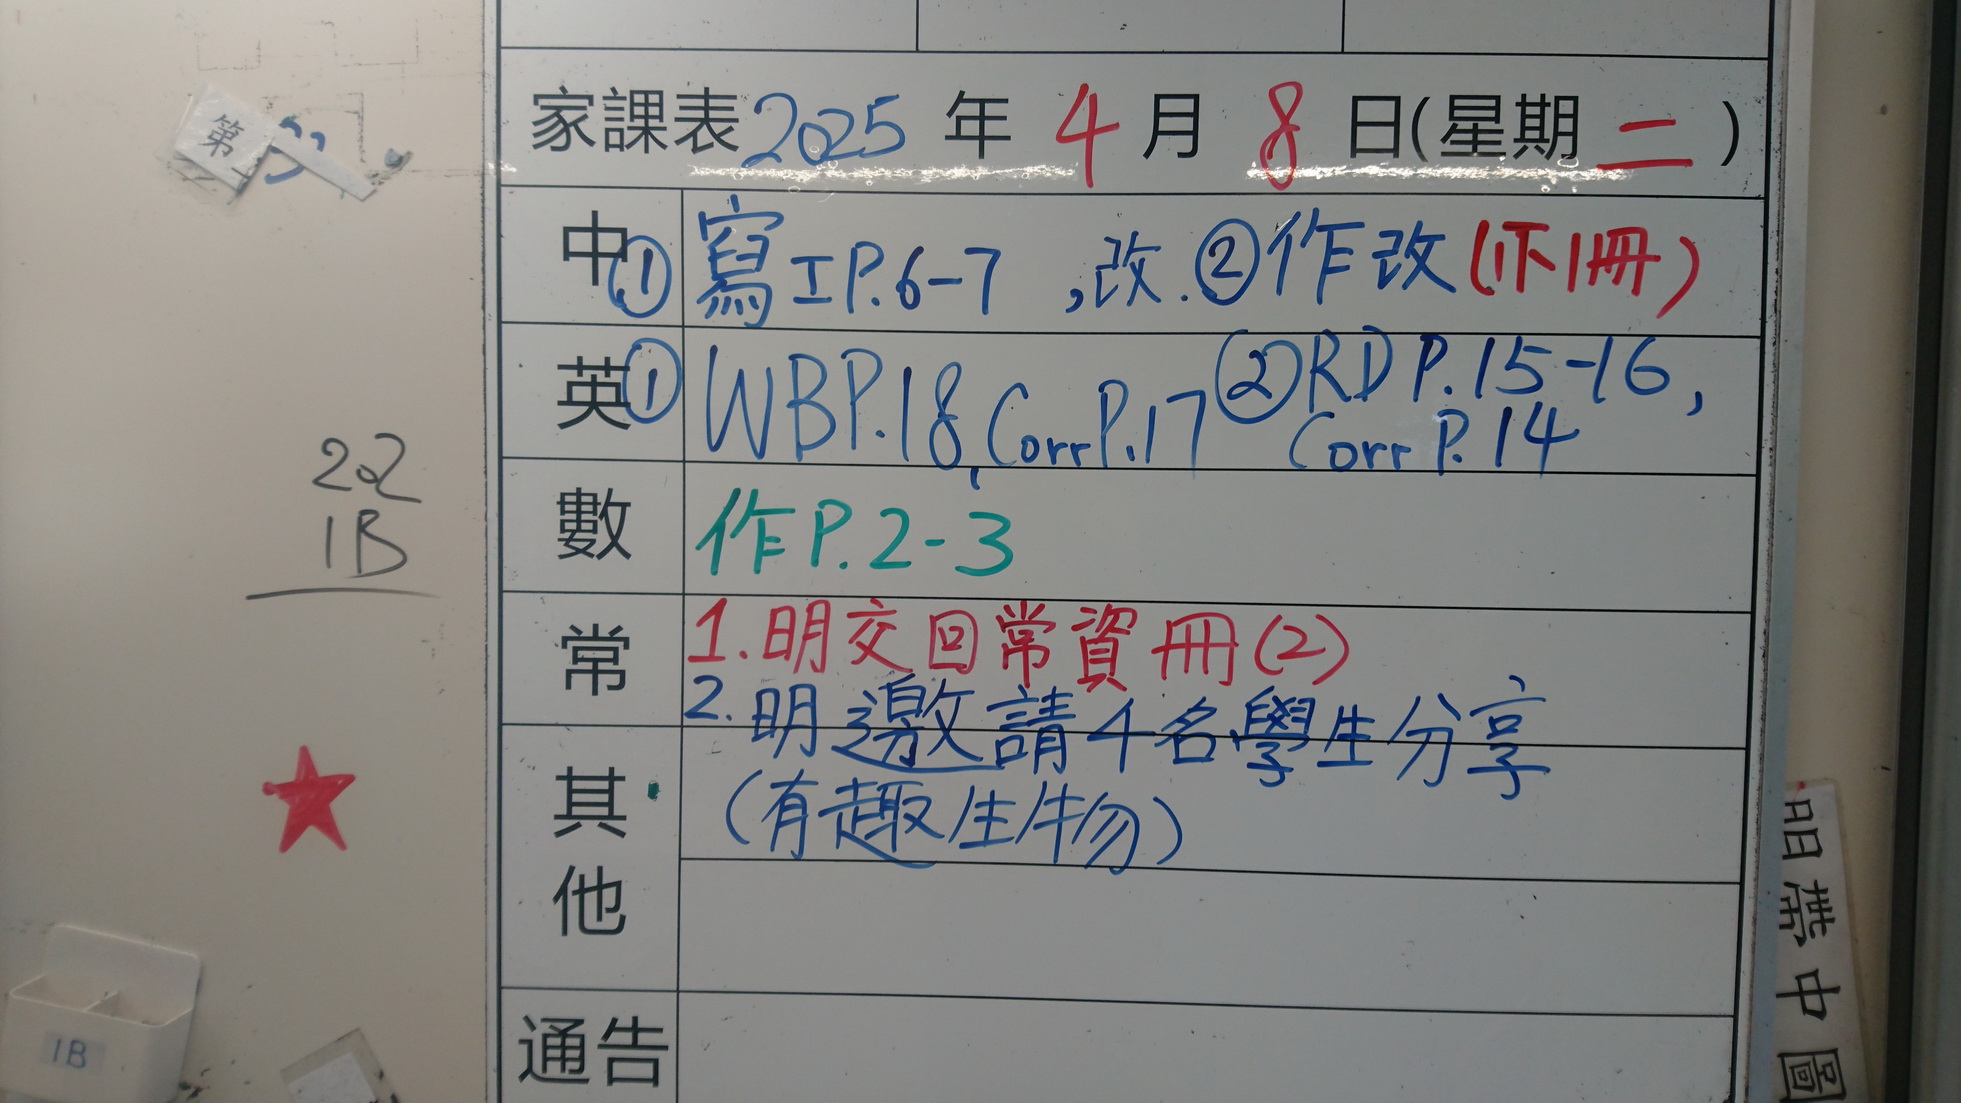 家課表 2025 年 4 月 8 日(星期 二 )
中 ① 寫工P.6-7 ,改. ② 作改(下冊)
英 ① WBP.18, Corr P.17 ② RD P.15-16,
Corr P.14
數 作P.2-3
常 1. 明交回常資冊(2)
2. 明邀請4名學生分享
(有趣生物)
其他
通告
第
202
1B
1B
中
圖